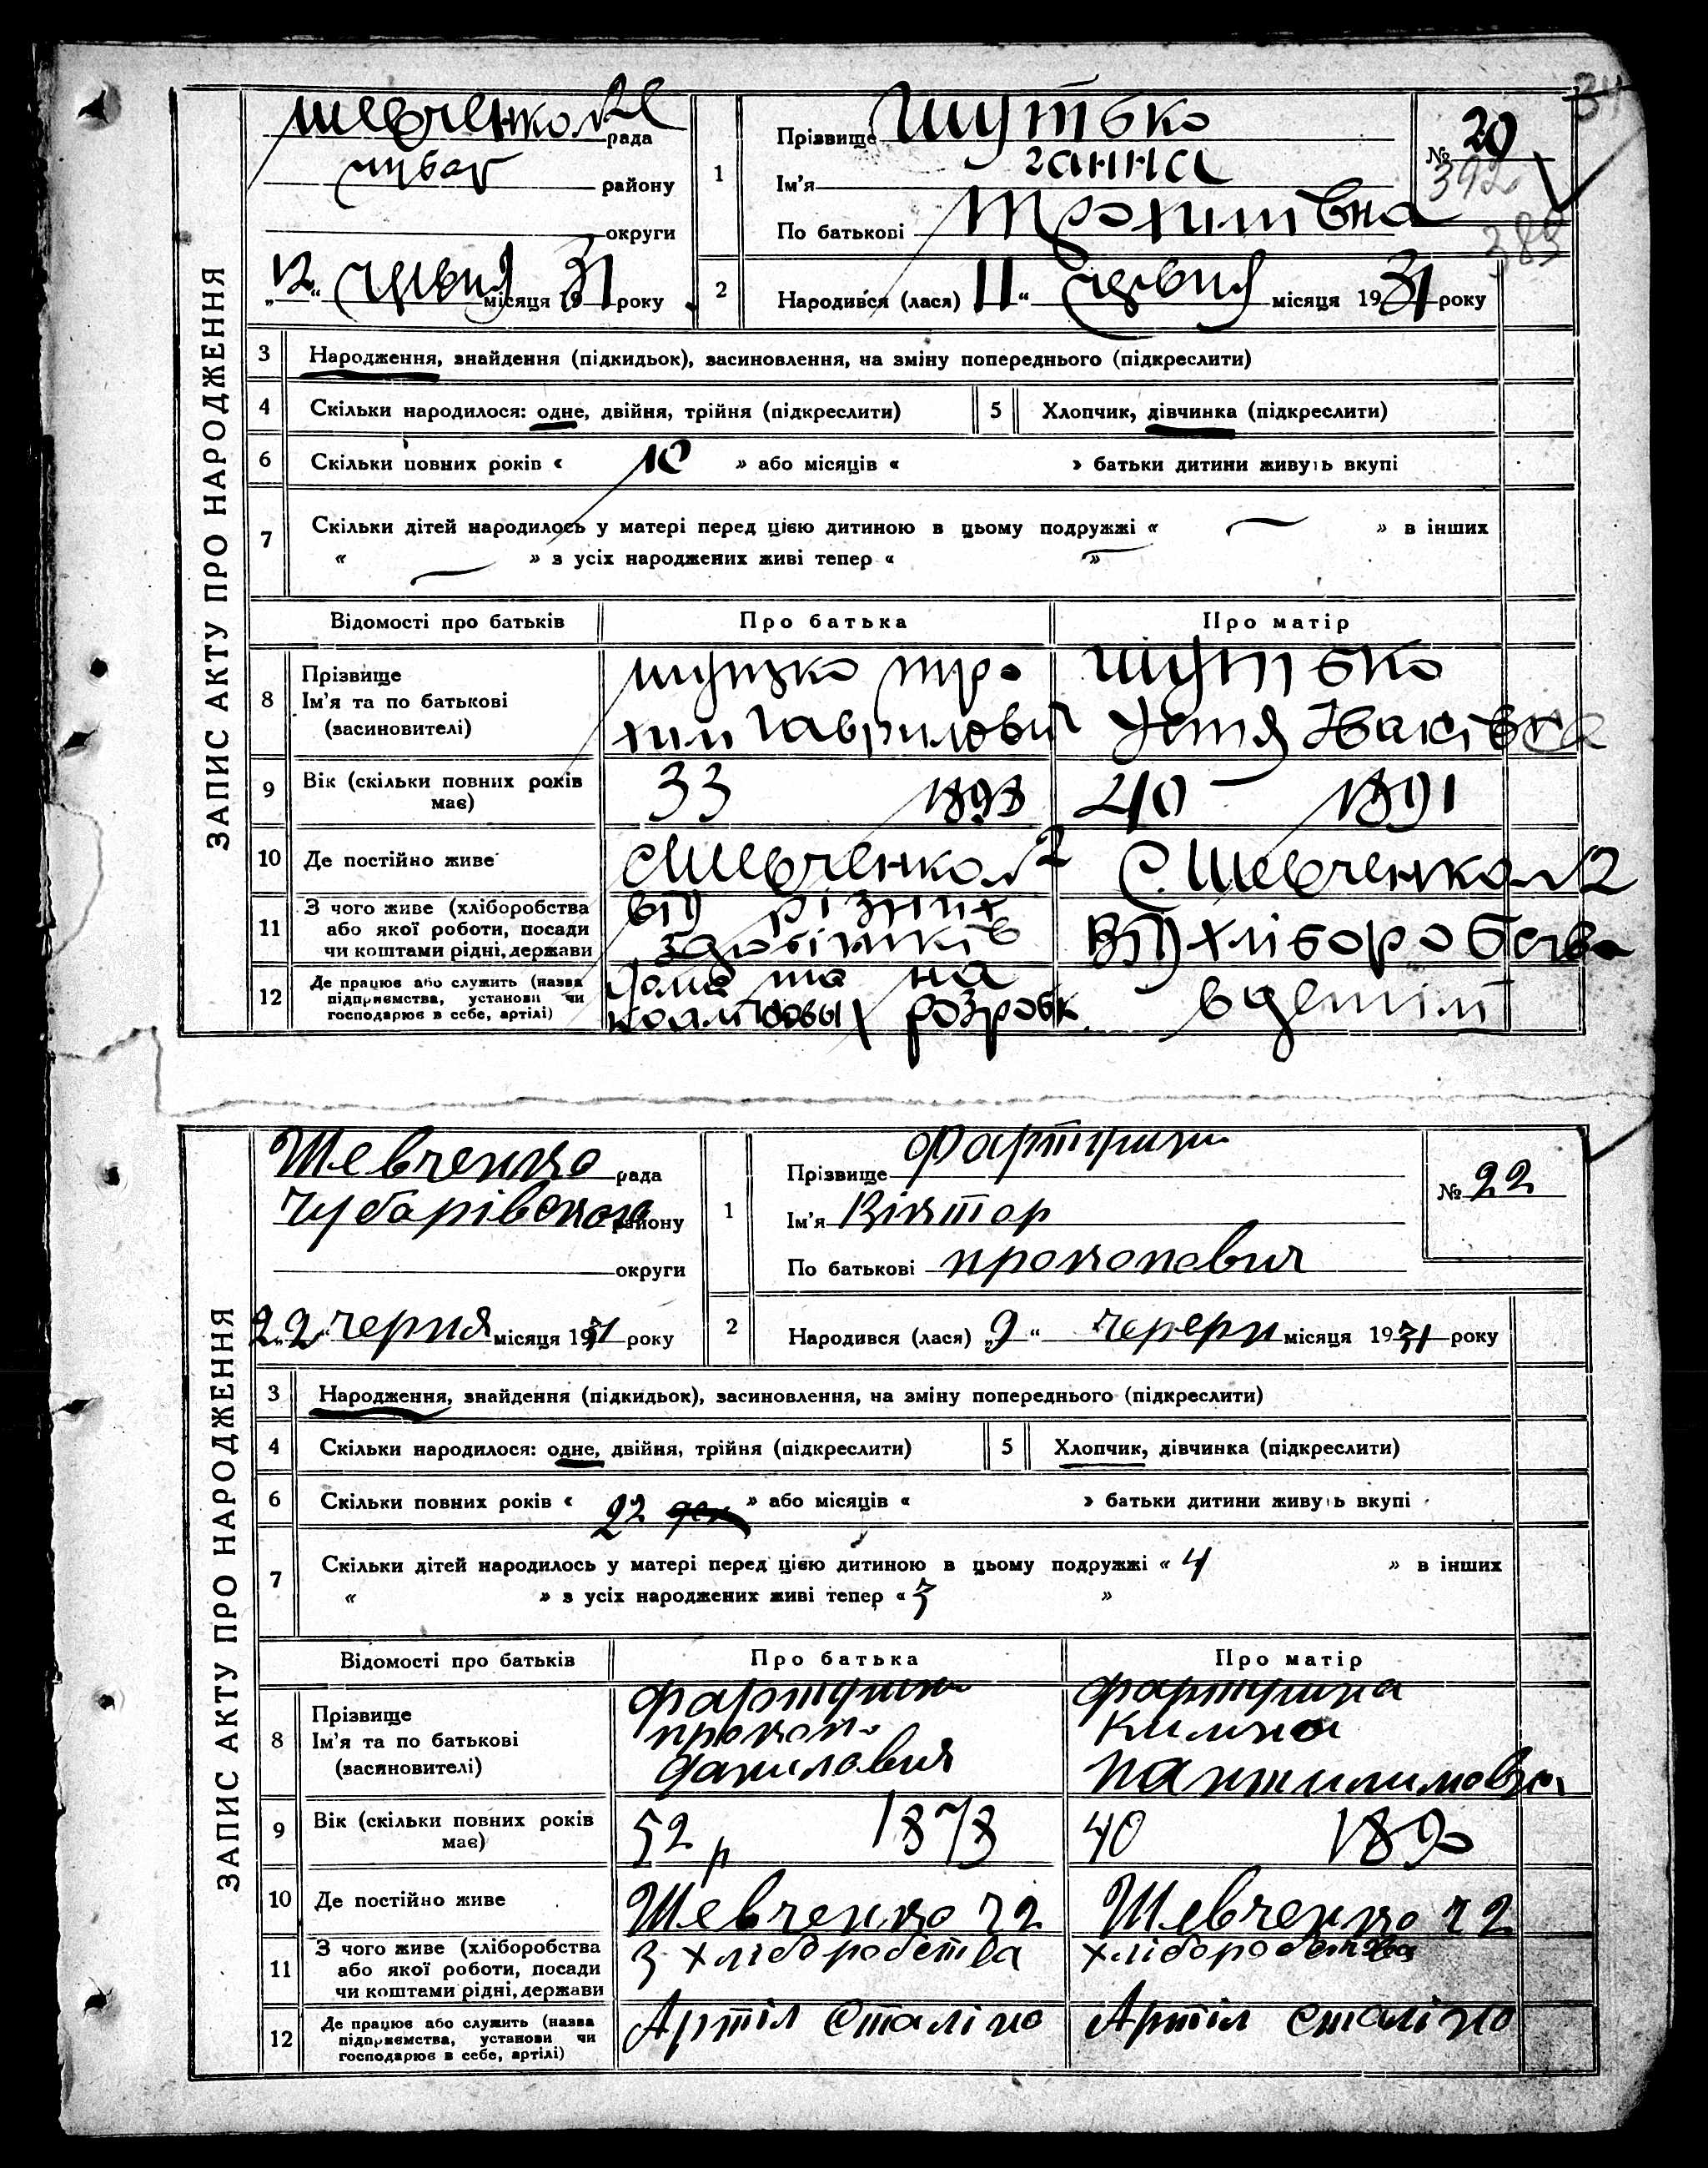 ЗАПИС АКТУ ПРО НАРОДЖЕННЯ
рада
району
округи
„12“ червня місяця 1931 року
1
Прізвище Шутько
Ім'я Ганна
По батькові Трохимівна
№ 20
392
383
2
Народився (лася) 11“ червня місяця 1931 року
3 Народження, знайдення (підкидьок), засиновлення, на зміну попереднього (підкреслити)
4 Скільки народилося: одне, двійня, трійня (підкреслити)
5 Хлопчик, дівчинка (підкреслити)
6 Скільки повних років « 10 » або місяців « » батьки дитини живуть вкупі
7 Скільки дітей народилось у матері перед цією дитиною в цьому подружжі « — » в інших
« — » з усіх народжених живі тепер « — »
Відомості про батьків Про батька Про матір
8 Прізвище
Ім'я та по батькові
(засиновителі)
Шутько Тро
хим Гаврилович
Шутько
9 Вік (скільки повних років
має)
33 1898
40 1891
10 Де постійно живе
С. Шевченко №2
С. Шевченко №2
11 З чого живе (хліборобства
або якої роботи, посади
чи коштами рідні, держави
від різних
Від хліборобства
12 Де працює або служить (назва
підприємства, установи чи
господарює в себе, артілі)
дома та на
розробк.
ЗАПИС АКТУ ПРО НАРОДЖЕННЯ
Шевченко рада
Чубарівского району
округи
„22“ черня місяця 1931 року
1
Прізвище
Ім'я Віктор
По батькові прокопович
№ 22
2
Народився (лася) „9“ місяця 1931 року
3 Народження, знайдення (підкидьок), засиновлення, на зміну попереднього (підкреслити)
4 Скільки народилося: одне, двійня, трійня (підкреслити)
5 Хлопчик, дівчинка (підкреслити)
6 Скільки повних років « 22 » або місяців « » батьки дитини живуть вкупі
7 Скільки дітей народилось у матері перед цією дитиною в цьому подружжі « 4 » в інших
« » з усіх народжених живі тепер « 3 »
Відомості про батьків Про батька Про матір
8 Прізвище
Ім'я та по батькові
(засиновителі)
прокоп
данилович
9 Вік (скільки повних років
має)
52 р 1878
40 1890
10 Де постійно живе
Шевченко ч 2
Шевченко ч 2
11 З чого живе (хліборобства
або якої роботи, посади
чи коштами рідні, держави
З хліборобства
хліборобства
12 Де працює або служить (назва
підприємства, установи чи
господарює в себе, артілі)
Артіл Сталіно
Артіл Сталіно